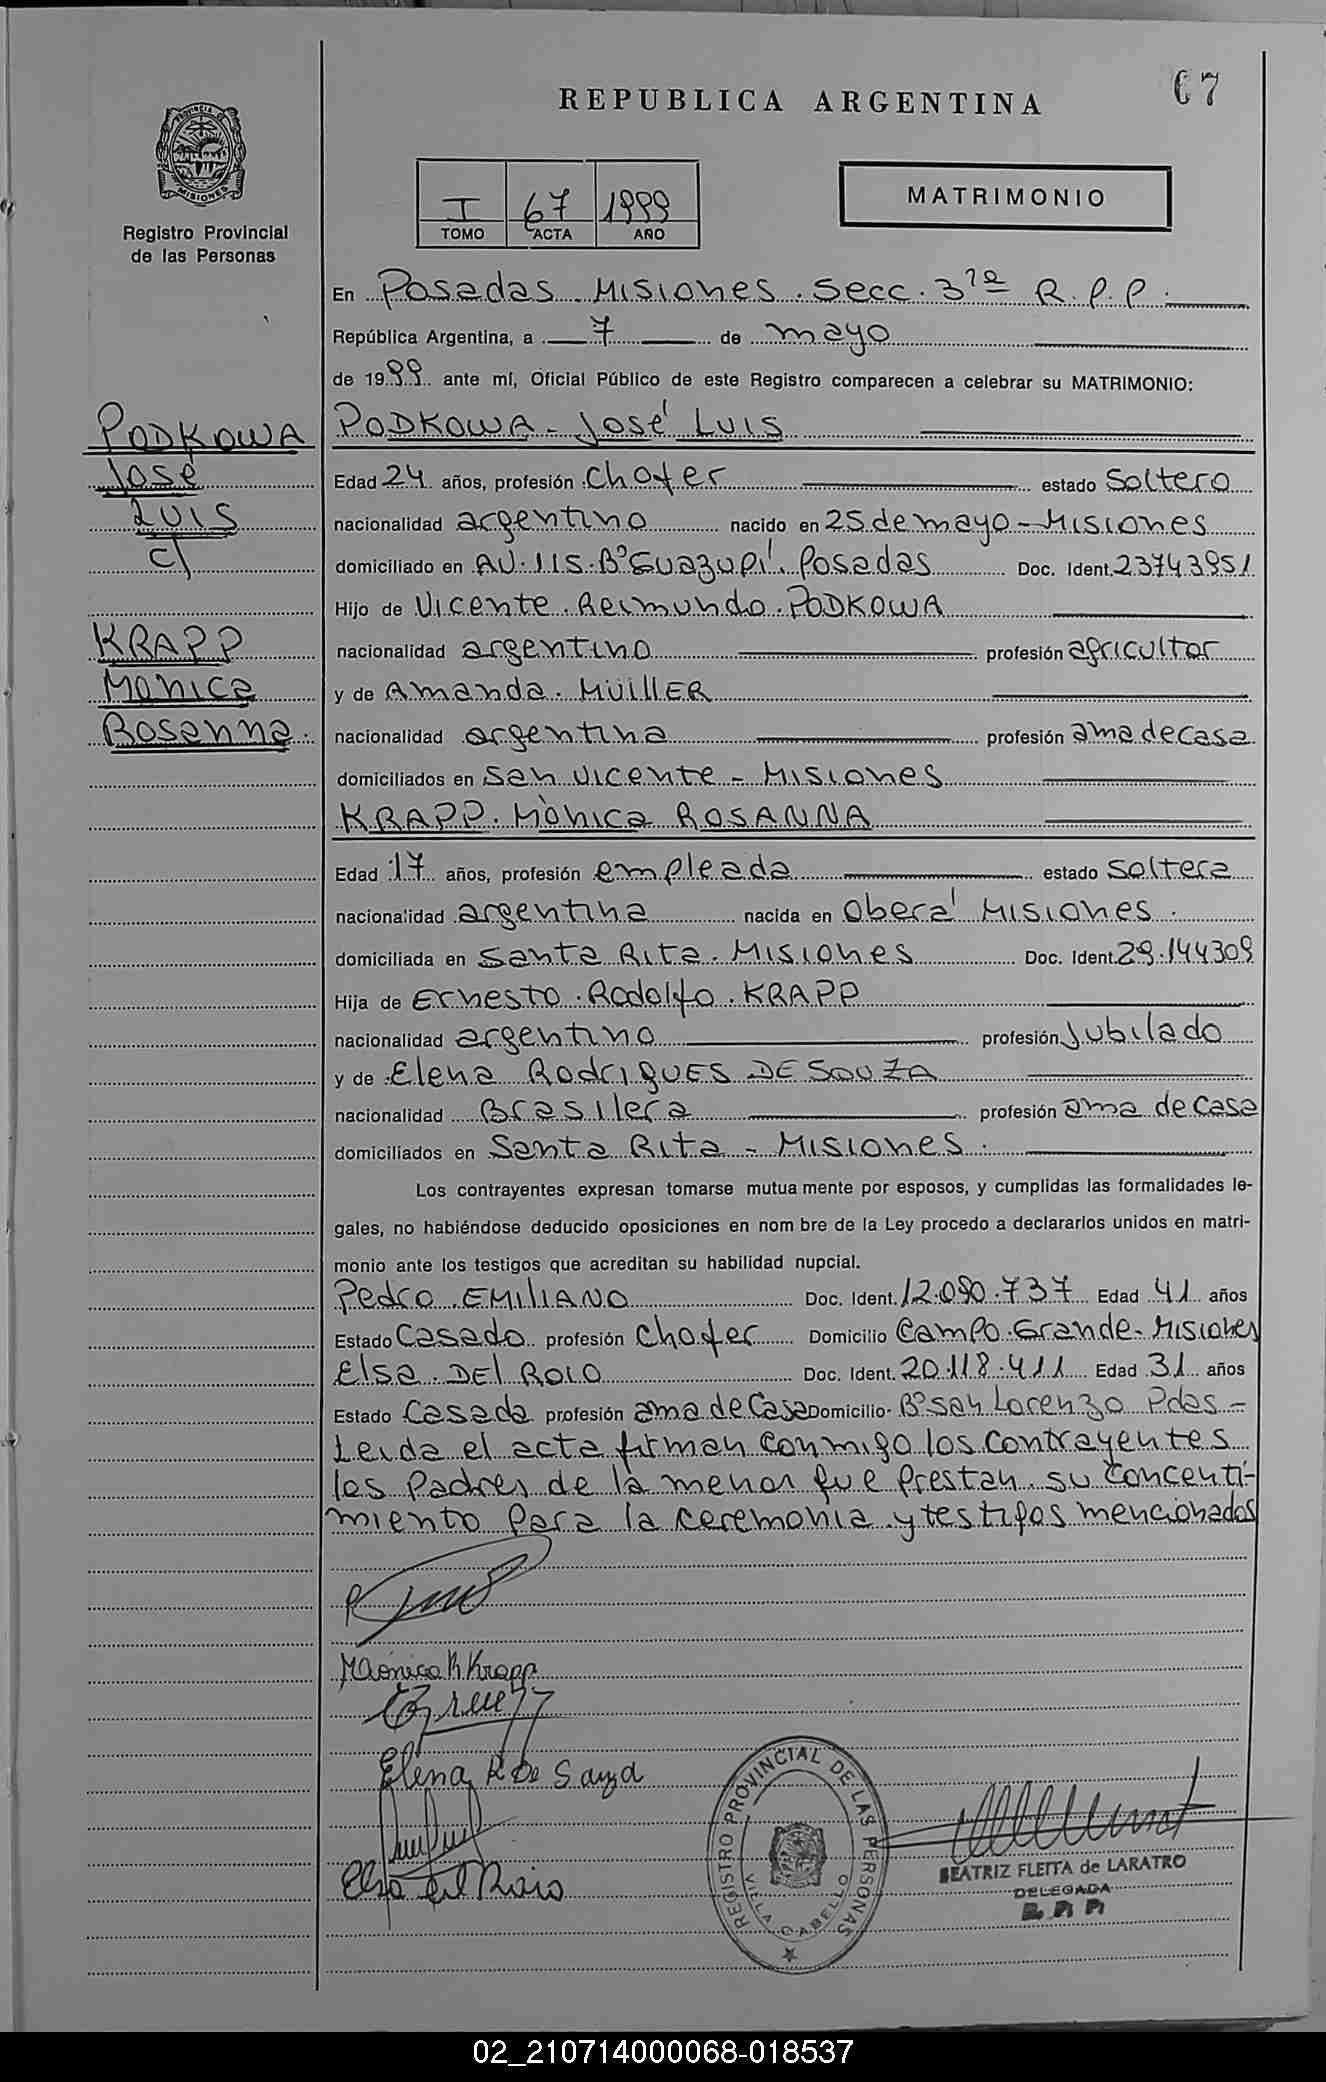 67
REPUBLICA ARGENTINA
PROVINCIA DE
MISIONES
Registro Provincial
de las Personas
I 67 1999
TOMO ACTA AÑO
MATRIMONIO
En Posadas. Misiones. Secc. 3ra R.P.P.
República Argentina, a 7 de mayo
de 1999 ante mí, Oficial Público de este Registro comparecen a celebrar su MATRIMONIO:
PODKOWA
José
LUIS
c/
KRAPP
Monica
Rosanna.
PODKOWA - José LUIS
Edad 24 años, profesión chofer estado soltero
nacionalidad argentino nacido en 25 de mayo - Misiones
domiciliado en AV. 115. Bº Guazupí. Posadas Doc. Ident. 23743951
Hijo de Vicente. Reimundo. PODKOWA
nacionalidad argentino profesión agricultor
y de Amanda. MÜLLER
nacionalidad argentina profesión ama de casa
domiciliados en San Vicente - Misiones
KRAPP. Mònica ROSANNA
Edad 17 años, profesión empleada estado soltera
nacionalidad argentina nacida en Oberá Misiones.
domiciliada en Santa Rita. Misiones Doc. Ident. 29.144309
Hija de Ernesto. Rodolfo. KRAPP
nacionalidad argentino profesión Jubilado
y de Elena RodrigUES DE SOUZA
nacionalidad Brasilera profesión ama de casa
domiciliados en Santa Rita - Misiones.
Los contrayentes expresan tomarse mutua mente por esposos, y cumplidas las formalidades le-
gales, no habiéndose deducido oposiciones en nom bre de la Ley procedo a declararlos unidos en matri-
monio ante los testigos que acreditan su habilidad nupcial.
Pedro. EMILIANO Doc. Ident. 12.090.737 Edad 41 años
Estado Casado profesión chofer Domicilio Campo. Grande. Misiones
Elsa. DEL ROIO Doc. Ident. 20.118.411 Edad 31 años
Estado Casada profesión ama de casa Domicilio Bº San Lorenzo Pdas -
Leida el acta firman conmigo los contrayentes
los Padres de la menor que prestan su concenti-
miento para la ceremonia y testigos mencionados
Mónica R Krapp
Elena R De Sauza
Elsa del Roio
REGISTRO PROVINCIAL DE LAS PERSONAS
VILLA CABELLO
BEATRIZ FLEITA de LARATRO
DELEGADA
R.P.P.
02_210714000068-018537